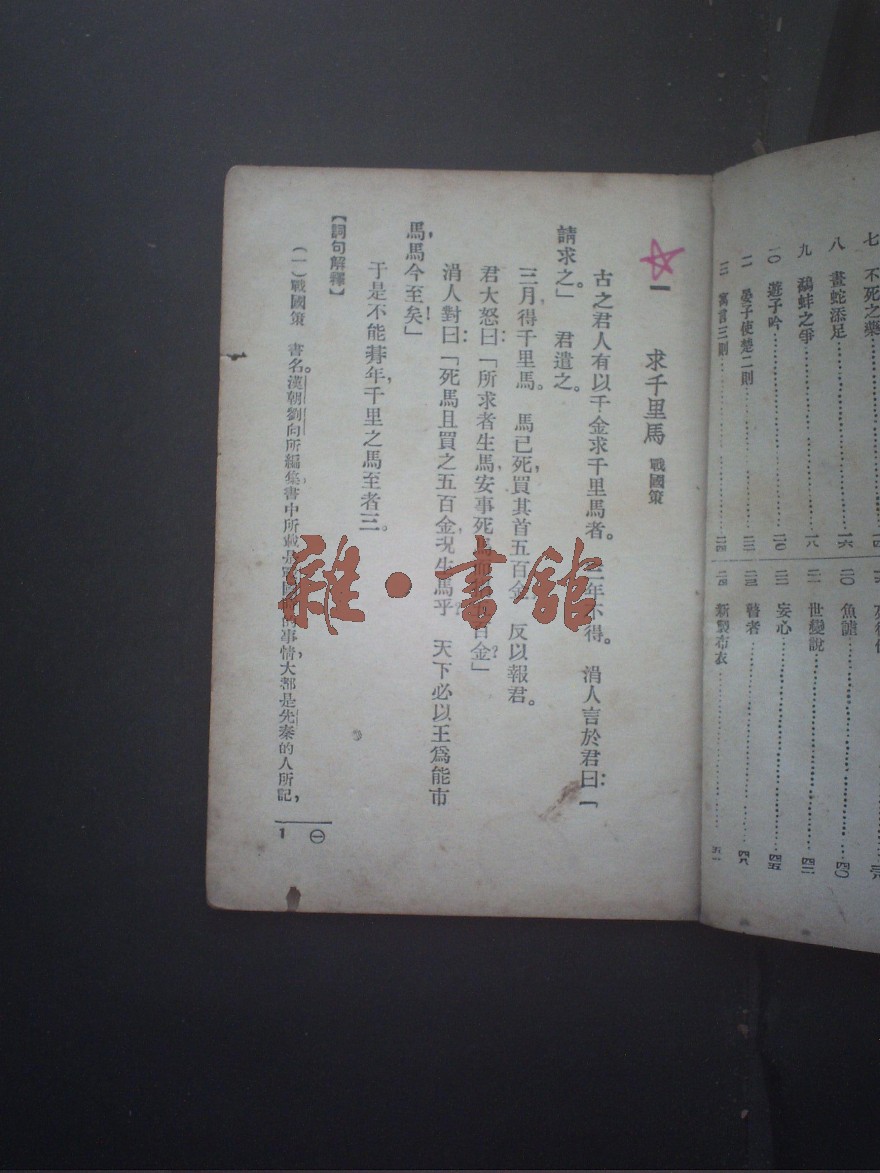 七 不死之藥
八 畫蛇添足 一六
九 鷸蚌之爭 一八
一〇 遊子吟 二〇
一一 晏子使楚二則 二二
一二 寓言三則 二四
二〇 四〇
二一 世變說 四二
二二 妄心 四五
二三 瞽者 四八
二四 新製布衣 五一
一 求千里馬 戰國策
古之君人有以千金求千里馬者。 年不得。 涓人言於君曰:「
請求之。」 君遣之。
三月,得千里馬。 馬已死,買其首五百金, 反以報君。
君大怒曰:「所求者生馬,安事死 百金?」
涓人對曰:「死馬且買之五百金,況生馬乎? 天下必以王爲能市
馬,馬今至矣!」
于是不能朞年,千里之馬至者三。
【詞句解釋】
(一)戰國策 書名。漢朝劉向所編集,書中所載 的事情,大都是先秦的人所記,
㊀
1
雜·書館